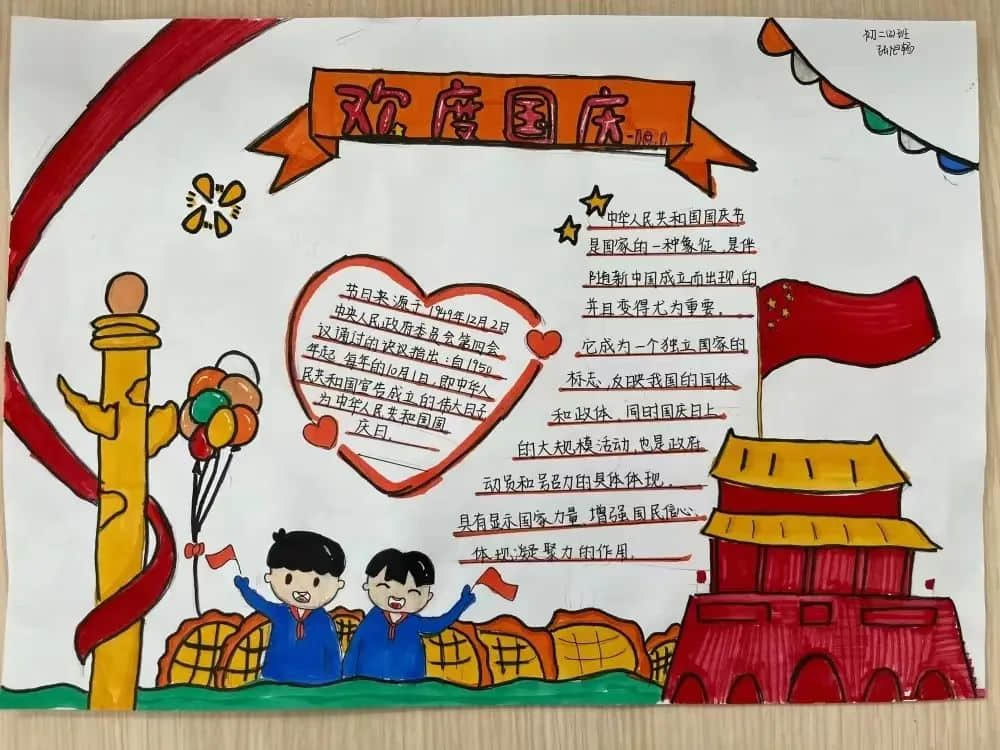 初二四班
欢度国庆
节日来源于1949年12月2日
中央人民政府委员会第四会
议通过的决议指出：自1950
年起每年的10月1日，即中华人
民共和国宣告成立的伟大日子
为中华人民共和国国
庆日．
中华人民共和国国庆节
是国家的一种象征，是伴
随新中国成立而出现，的
并且变得尤为重要．
它成为一个独立国家的
标志，反映我国的国体
和政体．同时国庆日上
的大规模活动，也是政府
动员和号召力的具体体现．
具有显示国家力量，增强国民信心，
体现凝聚力的作用．